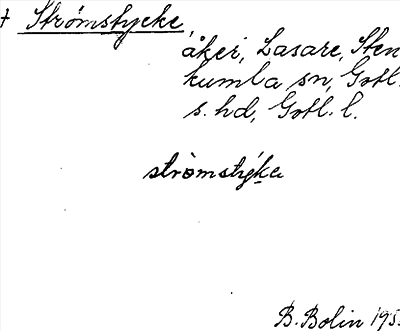 † Strømstycke,
åker, Lasare, Sten
kumla sn, Gotl.
s. hd, Gotl. l.
strømstýka
B. Bolin 195